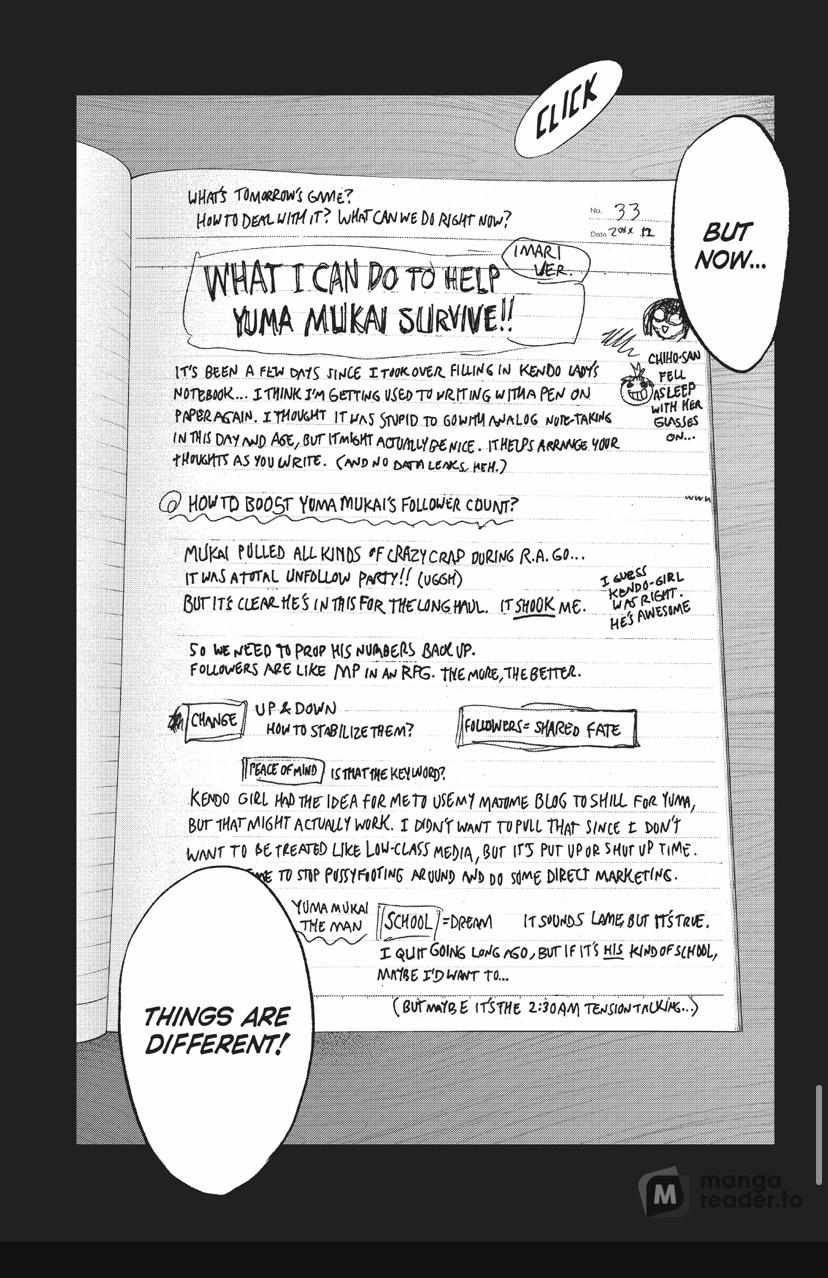 CLICK
BUT
NOW...
WHAT'S TOMORROW'S GAME?
HOW TO DEAL WITH IT? WHAT CAN WE DO RIGHT NOW?
No. 33
Date 201X 12
IMARI
VER.
WHAT I CAN DO TO HELP
YUMA MUKAI SURVIVE!!
CHIHO-SAN
FELL
ASLEEP
WITH HER
GLASSES
ON...
IT'S BEEN A FEW DAYS SINCE I TOOK OVER FILLING IN KENDO LADY'S
NOTEBOOK... I THINK I'M GETTING USED TO WRITING WITH A PEN ON
PAPER AGAIN. I THOUGHT IT WAS STUPID TO GO WITH ANALOG NOTE-TAKING
IN THIS DAY AND AGE, BUT IT MIGHT ACTUALLY BE NICE. IT HELPS ARRANGE YOUR
THOUGHTS AS YOU WRITE. (AND NO DATA LEAKS, HEH.)
HOW TO BOOST YUMA MUKAI'S FOLLOWER COUNT?
www
MUKAI PULLED ALL KINDS OF CRAZY CRAP DURING R.A.GO...
IT WAS A TOTAL UNFOLLOW PARTY!! (UGGH)
BUT IT'S CLEAR HE'S IN THIS FOR THE LONG HAUL. IT SHOOK ME.
I GUESS
KENDO-GIRL
WAS RIGHT.
HE'S AWESOME
SO WE NEED TO PROP HIS NUMBERS BACK UP.
FOLLOWERS ARE LIKE MP IN AN RPG. THE MORE, THE BETTER.
CHANGE
UP & DOWN
HOW TO STABILIZE THEM?
FOLLOWERS = SHARED FATE
PEACE OF MIND IS THAT THE KEYWORD?
KENDO GIRL HAD THE IDEA FOR ME TO USE MY MATOME BLOG TO SHILL FOR YUMA,
BUT THAT MIGHT ACTUALLY WORK. I DIDN'T WANT TO PULL THAT SINCE I DON'T
WANT TO BE TREATED LIKE LOW-CLASS MEDIA, BUT IT'S PUT UP OR SHUT UP TIME.
TO STOP PUSSYFOOTING AROUND AND DO SOME DIRECT MARKETING.
YUMA MUKAI
THE MAN
SCHOOL = DREAM IT SOUNDS LAME, BUT IT'S TRUE.
I QUIT GOING LONG AGO, BUT IF IT'S HIS KIND OF SCHOOL,
MAYBE I'D WANT TO...
(BUT MAYBE IT'S THE 2:30 AM TENSION TALKING...)
THINGS ARE
DIFFERENT!
manga
reader.to